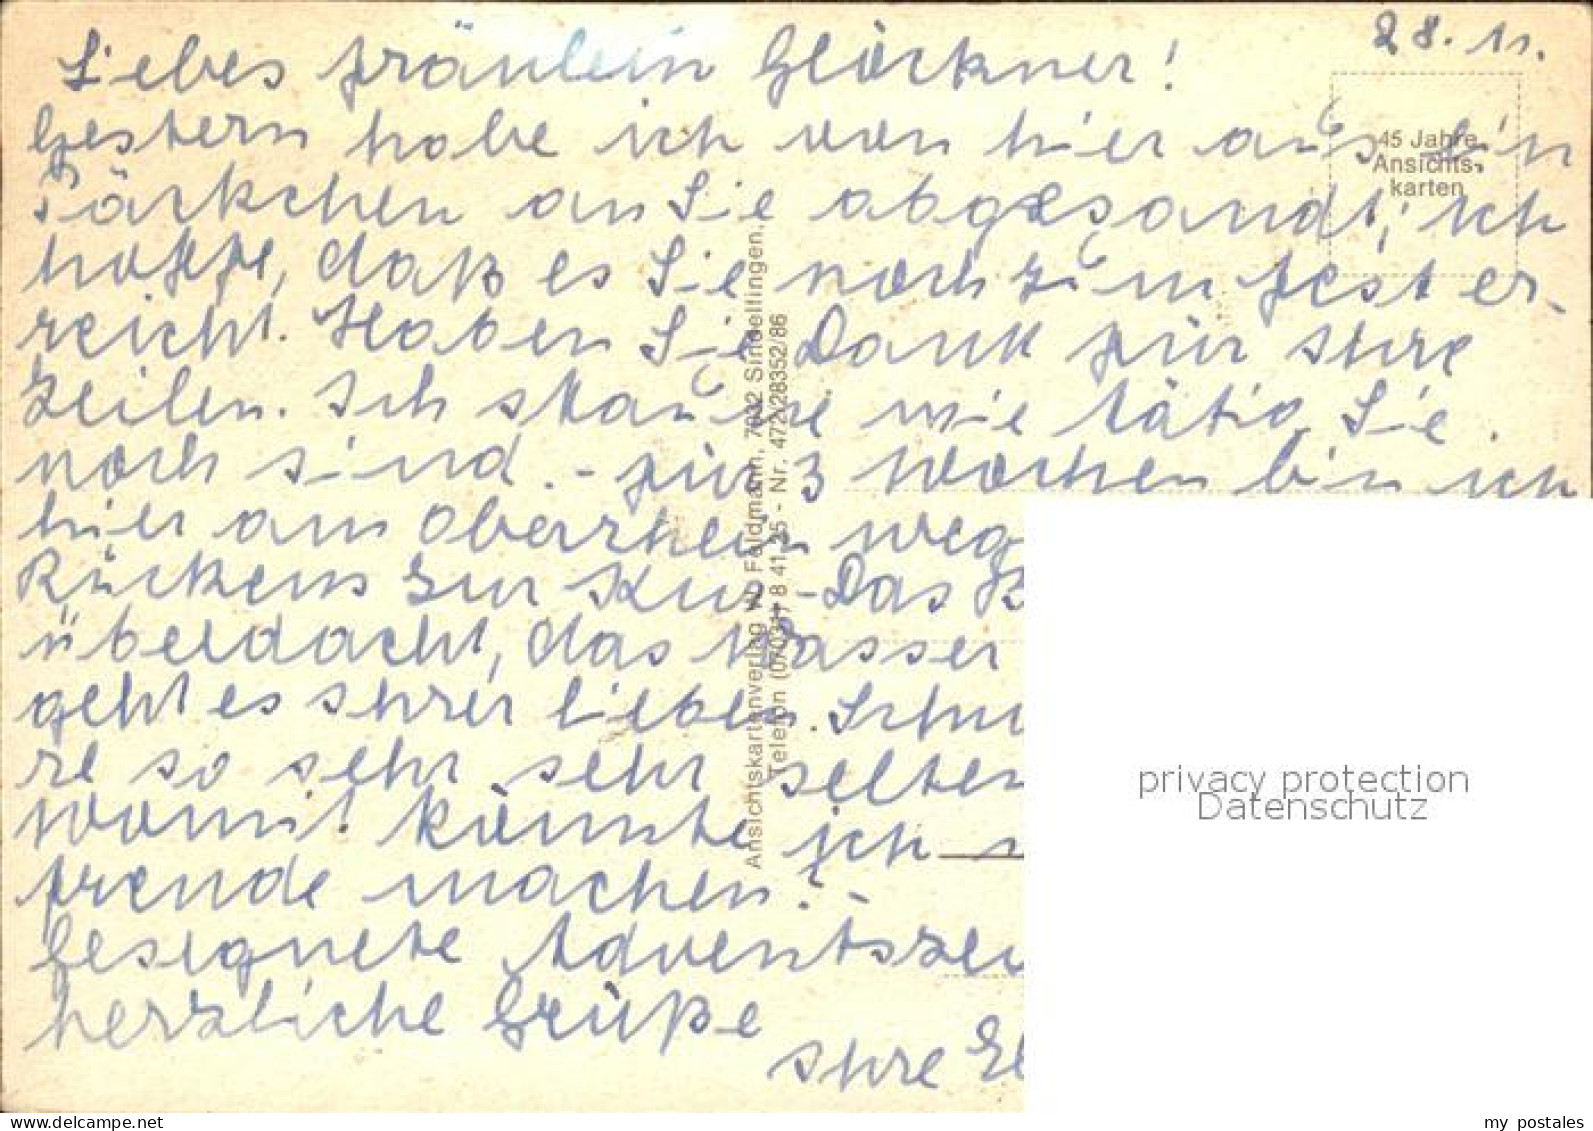 28.11.
Liebes Fräulein Glöckner!
45 Jahre
Ansichts-
karten
Gestern habe ich von hier aus ein
Päckchen an Sie abgesandt; ich
hoffe, daß es Sie noch zum Fest er-
reicht. Haben Sie Dank für Ihre
Zeilen. Ich staune wie tätig Sie
noch sind. - Für 3 Wochen bin ich
hier am Oberrhein weg
Rückens zur Kur - Das B
überdacht, das Wasser
geht es Ihrer lieben Schw
re so sehr sehr selten
Womit könnte ich
Freude machen? -
Gesegnete Adventszei
herzliche Grüße
Ihre El
Ansichtskartenverlag W. Feldmann, 7032 Sindelfingen,
Telefon (07031) 8 41 35 - Nr. 472/28352/86
privacy protection
Datenschutz
delcampe.net
my_postales